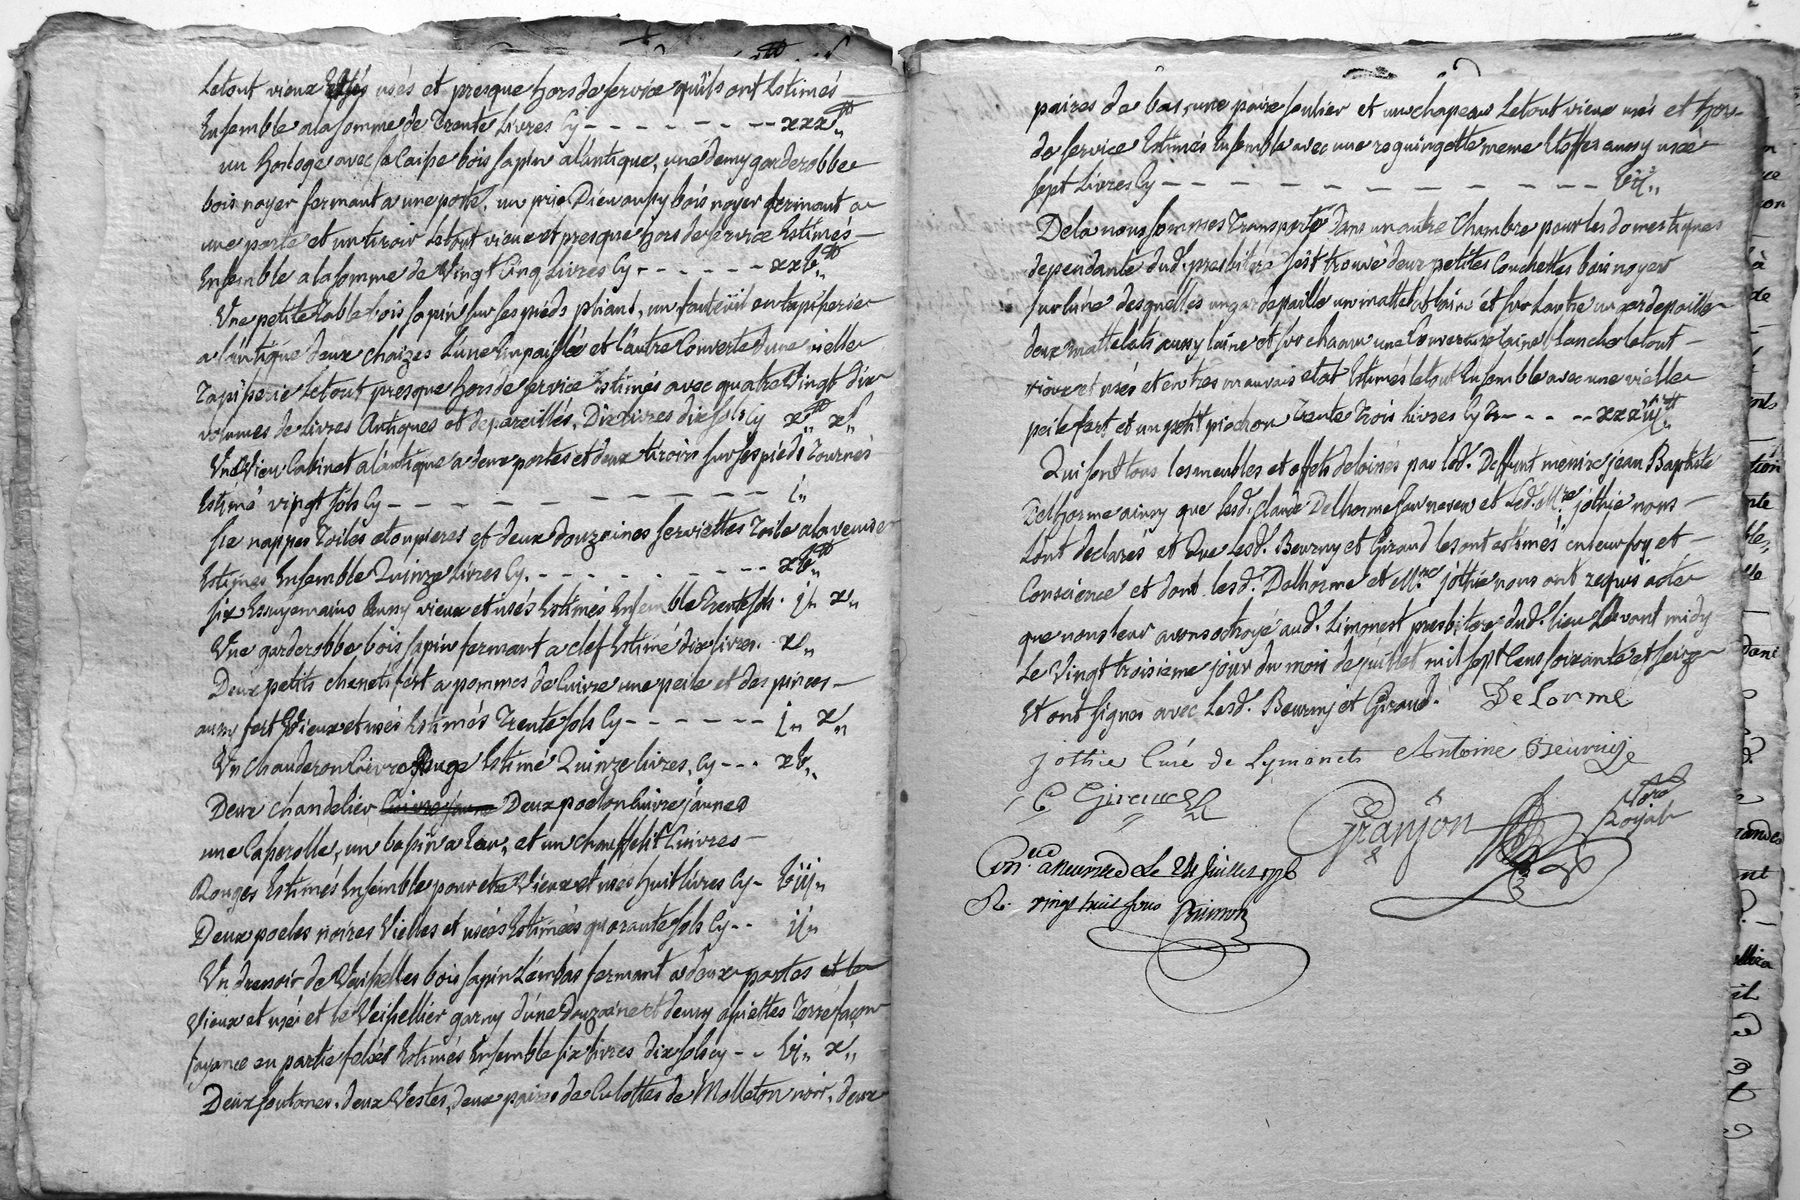 Letout vieux usés et presque hors de service quils ont Estimés
Ensemble ala somme de Trente Livres Cy - - - - - - - - xxx₶„
un horloge avec sa Caisse bois sapin alantique, une demy garderobbe
bois noyer fermant a une porte, un prie Dieu aussy bois noyer fermant a
une porte et un tiroir Letout vieux et presque hors de service Estimés -
Ensemble a la somme de Vingt Cinq Livres Cy - - - - - - xxb₶„
Une petite table bois sapin sur ses pieds pliant, un fauteüil en tapisserie
a lantique deux chaizes L'une Empaillée et L'autre Couverte d'une vielle
Tapisserie Letout presque hors de service Estimés avec quatre Vingt dix
volumes de Livres Antiques et depareillés, Dix Livres dix sols Cy x₶„ xs„
Un Vieux Cabinet alantique a deux portes et deux tiroirs sur ses pieds Tournés
Estimé vingt sols Cy - - - - - - - - - - - i„
six nappes Toiles etoupieres et deux douzaines serviettes Toile ala venise
Estimés Ensemble Quinze Livres Cy. - - - - - - - - - xb₶„
six Essuyemains aussy vieux et usés Estimés Ensemble Trente sols. i„ x„
Une garderobbe bois sapin fermant a clef Estimé dix livres. x„
Deux petits chenets fert a pommes de Cuivre une pelle et des pinces -
aussy fert Vieux et usés Estimés Trente sols Cy - - - - - - - j„ x„
Un Chauderon Cuivre Rouge Estimé Quinze livres, Cy - - - xb„
Deux chandelier Cuivre jaune Deux poelon Cuivre jaunes
une Casserolle, un bassin a Eau, et un Chauffelit Cuivres -
Rouges Estimés Ensemble pour etre Vieux et usés huit livres Cy - biij„
Deux poeles noires Vielles et usées Estimées quarante sols Cy - - ij„
Un dressoir de Veisselles bois sapin L'embas fermant a deux portes et le
Vieux et usés et le Veissellier garny d'une Douzaine et demy assiettes Terre façon
fayance en partie felées Estimés Ensemble six livres dix sols cy - - bj„ x„
Deux soutanes, deux Vestes, deux paires de Culottes de Molleton noir, deux
paires de bas, une paire soulier et un chapeau Letout vieux usés et hors -
de service Estimés Ensemble avec une reguingotte meme Etoffes aussy usée
sept Livres Cy - - - - - - - - - - - bij„
Dela nous sommes Transporté dans un autre Chambre pour les domestiques
dependante dud. presbitere sest trouvé deux petites Couchettes bois noyer
sur l'une desquelles un gardepaille un mattelat laine et sur L'autre un gardepaille
deux mattelats aussy laine et sur chacun une Couverture laine blanche Letout -
vieux et usés et en tres mauvais etat Estimés letout Ensemble avec une vielle
pelle fert et un petit piochon Trente Trois Livres Cy - - - - xxxiij₶„
Qui sont tous les meubles et effets delaissés par led. Deffunt messire jean Baptiste
Delhorme ainsy que Lesd. Claude Delhorme son neveu et Led. Mre. jothie nous -
L'ont declarés et Que Lesd. Beurny et Giraud les ont estimés en leur foy et -
Conscience et dont lesd. Delhorme et Mre. jothie nous ont requis acte
que nous leur avons octroyé aud. Limonest presbitere dud. lieu Devant midy
Le Vingt troisieme jour du mois de juillet mil sept Cens soixante et seize
Et ont signes avec Lesd. Beurny et Giraud. De Lorme
jothie Curé de Lymonets Antoine Beurnije
C Giraud
Granjon Nore Royal
Conlé a neuville Le 24 juillet 1776
R. vingt huit sous